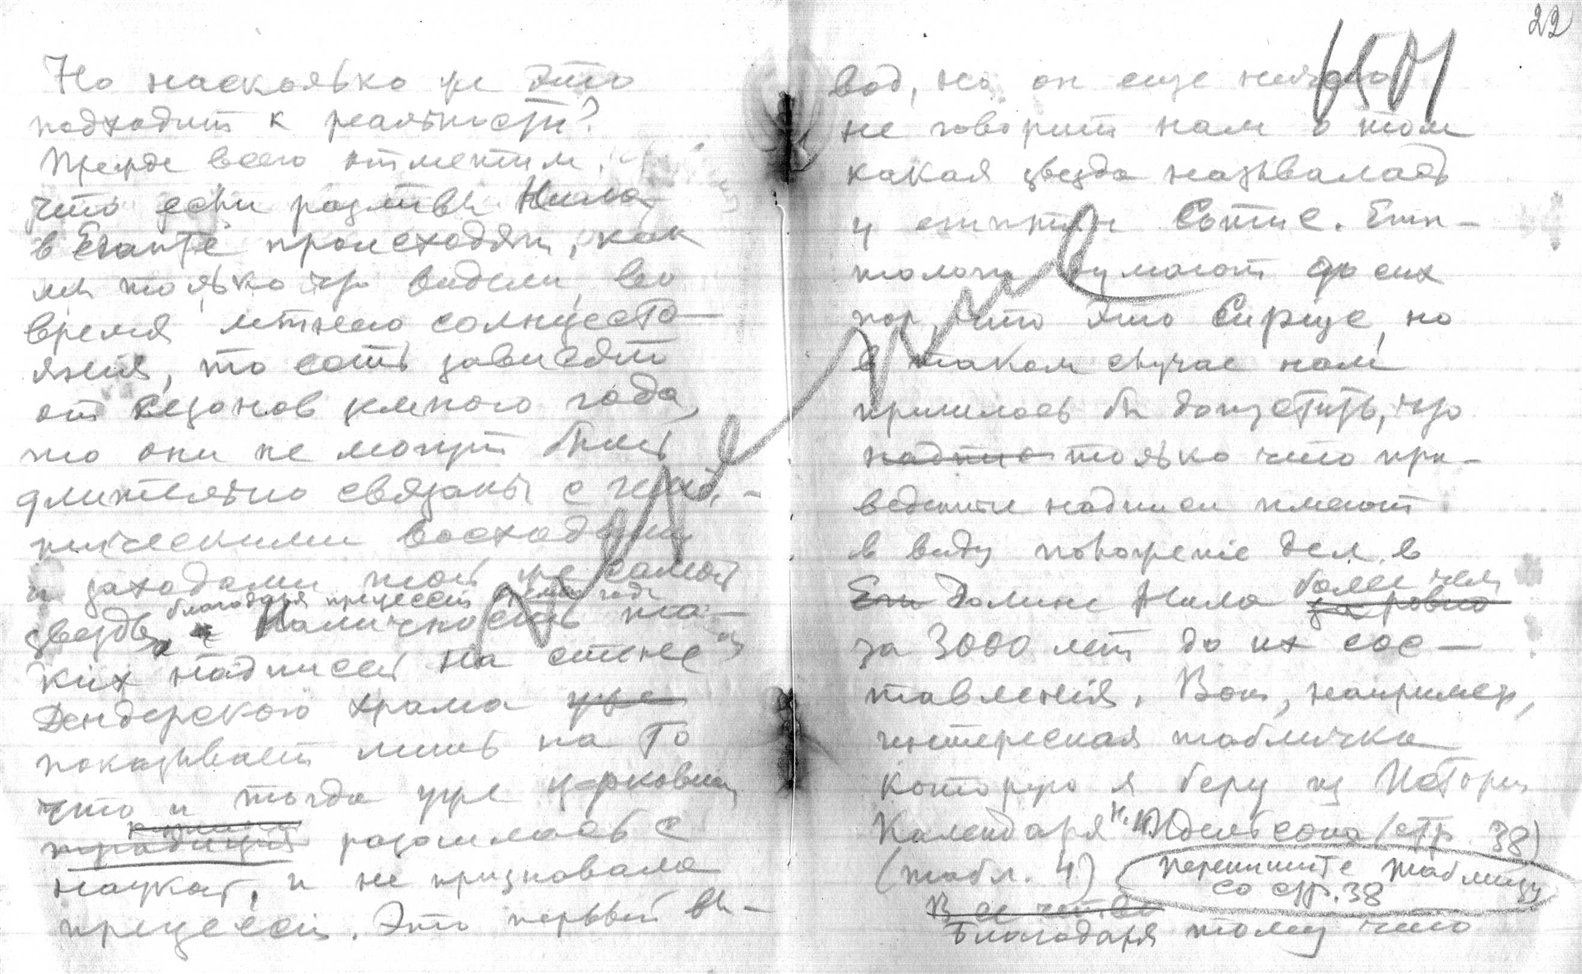 Но насколько же это
подходит к реальности?
Прежде всего отметим,
что если разливы Нила
в Египте происходят, как
мы только что видели, во
время летнего солнцесто-
яния, то есть зависят
от сезонов земного года,
то они не могут быть
длительно связаны с гелиа-
ческими восходами
и заходами той же самой
звезды,
благодаря прецессии
Наличность та-
ких надписей на стене
Дендерского храма уже
показывает лишь на то
что и тогда уже церковная
традиция разошлась с
наукой, и не признавала
прецессии. Это первый вы-
22
вод, но он еще ничего
не говорит нам о том
какая звезда называлась
у египтян Сотис. Египтологи думают до сих
пор, что это Сириус, но
в таком случае нам
пришлось бы допустить, что
надпис только что при-
веденные надписи имеют
в виду положение дел в
Еги Долине Нила более чем
за ровно
за 3000 лет до их сос-
тавления. Вот, например,
интересная табличка
которую я беру из Истории
Календаря Н.И. Идельсона (стр. 38)
(табл. 4) перепишите таблицу
со стр. 38
Благодаря тому что